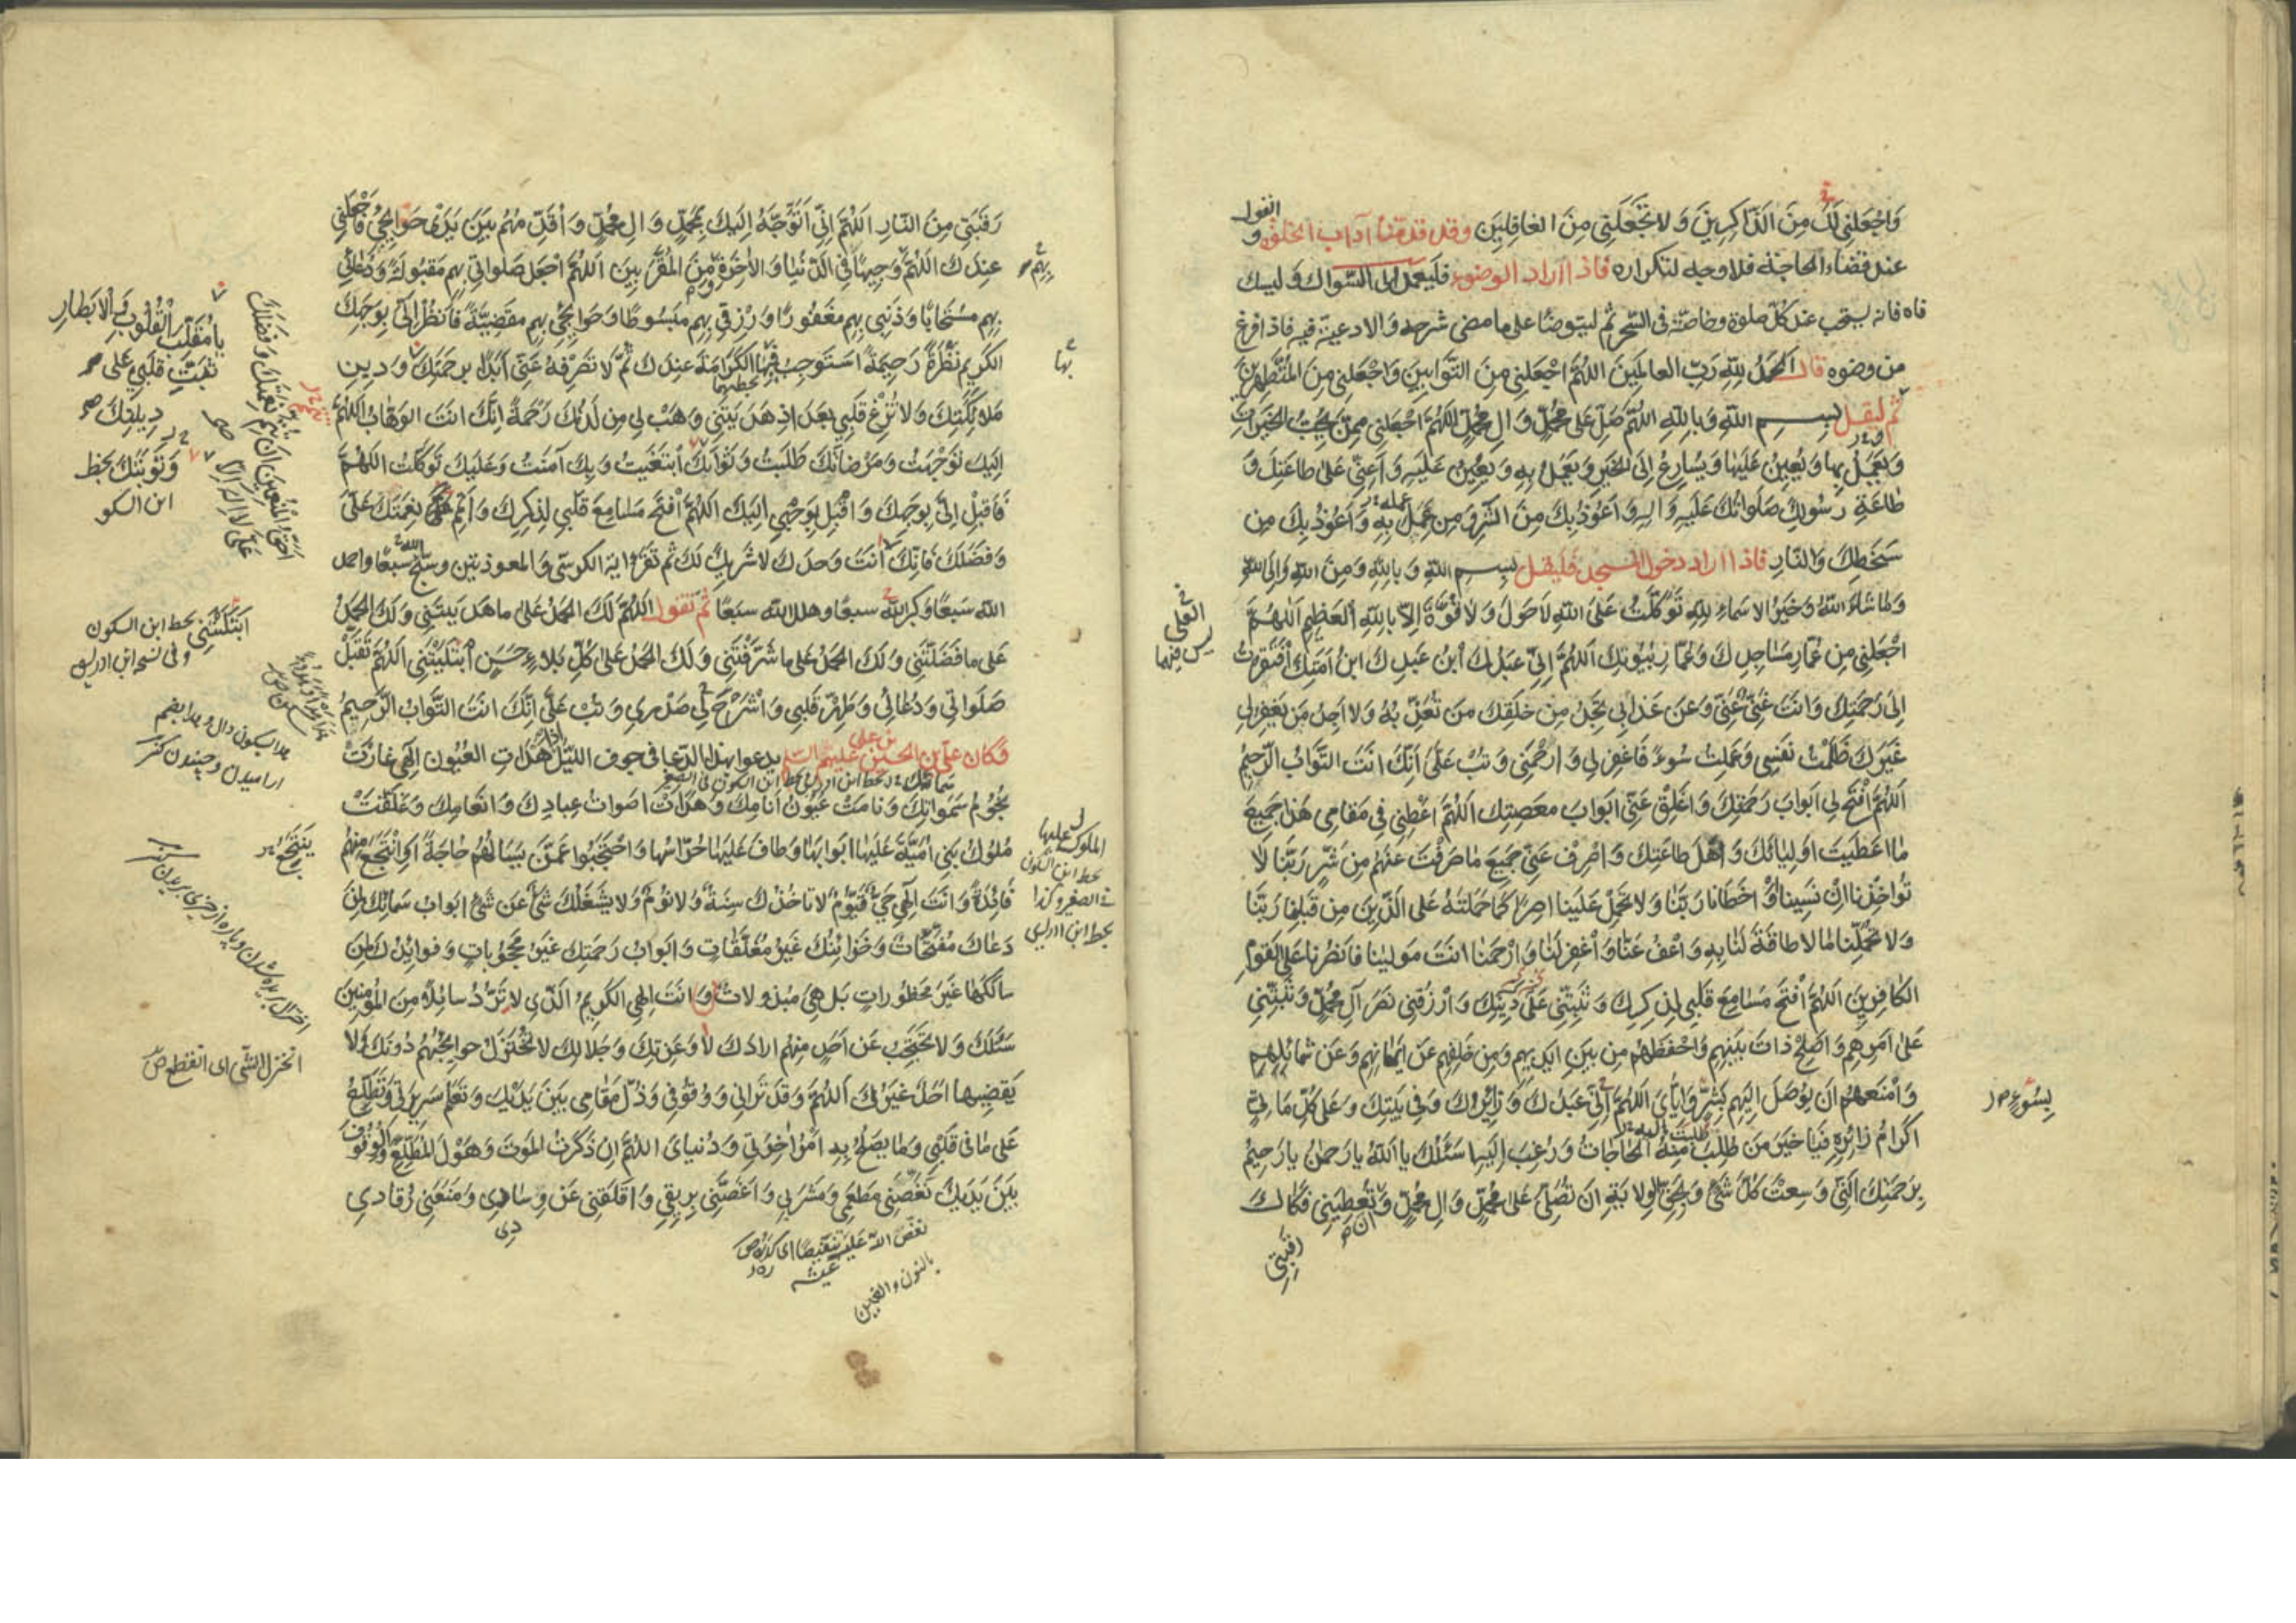 وَاجْعَلْنِي لَكَ مِنَ الذَّاكِرِينَ وَلَا تَجْعَلْنِي مِنَ الْغَافِلِينَ وقد قدمنا آداب الخلوة و القول
عند قضاء الحاجة فلا وجه لتكراره فاذا اراد الوضوء فليعمد الى السواك وليسك
فاه فانه يستحب عند كل صلوة وخاصة في السحر ثم ليتوضأ على ما مضى شرحه والادعية فيه فاذا فرغ
من وضوه قال الحمد لله رب العالمين اللهم اجعلني من التوابين واجعلني من المتطهرين
ثم ليقل بسم الله وبالله اللهم صل على محمد وال محمد اللهم اجعلني ممن يحب الخيرات
ويعمل بها ويعين عليها ويسارع الى الخير ويعمل به ويعين عليه واعني على طاعتك و
طاعة رسولك صلواتك عليه واله واعوذ بك من الشر ومن عمل به واعوذ بك من
سخطك والنار فاذا اراد دخول المسجد فليقل بسم الله وبالله ومن الله والى الله
وما شاء الله وخير الاسماء لله توكلت على الله لا حول ولا قوة الا بالله العلي العظيم اللهم
اجعلني من عمار مساجدك وعمار بيوتك اللهم اني عبدك ابن عبدك ابن امتك افتقرت
الى رحمتك وانت غني عني وعن عذابي تجد من خلقك من تعذبه ولا اجد من يغفر لي
غيرك ظلمت نفسي وعملت سوء فاغفر لي وارحمني وتب علي انك انت التواب الرحيم
اللهم افتح لي ابواب رحمتك واغلق عني ابواب معصيتك اللهم اعطني في مقامي هذا جميع
ما اعطيت اوليائك واهل طاعتك واصرف عني جميع ما صرفت عنهم من شر ربنا لا
تؤاخذنا ان نسينا او اخطانا ربنا ولا تحمل علينا اصرا كما حملته على الذين من قبلنا ربنا
ولا تحملنا ما لا طاقة لنا به واعف عنا واغفر لنا وارحمنا انت مولينا فانصرنا على القوم
الكافرين اللهم افتح مسامع قلبي لذكرك وثبتني على دينك وارزقني نصر آل محمد وثبتني
على امرهم واصلح ذات بينهم واحفظهم من بين ايديهم ومن خلفهم وعن ايمانهم وعن شمائلهم
وامنعهم ان يوصل اليهم بشر واياي اللهم اني عبدك وزائرك وفي بيتك وعلى كل ماتي
اكرام زائره فيا خير من طلبت منه الحاجات ورغب اليه اسئلك يا الله يا رحمن يا رحيم
برحمتك التي وسعت كل شئ وبحق الولاية ان تصلي على محمد وال محمد وان تعطيني فكاك
رقبتي
بسوء
رقبتي من النار اللهم اني اتوجه اليك بمحمد وال محمد واقدمهم بين يدى حوايجي فاجعلني
عندك اللهم وجيها في الدنيا والاخرة ومن المقربين اللهم اجعل صلواتي بهم مقبولة ودعائي
بهم مستجابا وذنبي بهم مغفورا ورزقي بهم مبسوطا وحوايجي بهم مقضية فانظر الي بوجهك
الكريم نظرة رحيمة استوجب بها الكرامة عندك ثم لا تصرفه عني ابدا برحمتك ودين
ملائكتك ولا تزغ قلبي بعد اذ هديتني وهب لي من لدنك رحمة انك انت الوهاب اللهم
اليك توجهت ومرضاتك طلبت وثوابك ابتغيت وبك آمنت وعليك توكلت اللهم
فاقبل الي بوجهك واقبل بوجهي اليك اللهم افتح مسامع قلبي لذكرك واتمم نعمتك علي
وفضلك فانك انت وحدك لا شريك لك ثم تقرأ اية الكرسي والمعوذتين وسبح الله سبعا واحمد
الله سبعا وكبر الله سبعا وهلل الله سبعا ثم تقول اللهم لك الحمد على ما هديتني ولك الحمد
على ما فضلتني ولك الحمد على ما شرفتني ولك الحمد على كل بلاء حسن ابتليتني اللهم تقبل
صلواتي ودعائي وطهر قلبي واشرح لي صدري وتب علي انك انت التواب الرحيم
وكان علي بن الحسين بن علي عليهم السلم يدعوا بهذا الدعا في جوف الليل اذا هدات العيون الهي غارت
نجوم سمواتك ونامت عيون انامك وهدات اصوات عبادك وانعامك وغلقت
ملوك بني امية عليها ابوابها وطاف عليها حراسها واحتجبوا عمن يسالهم حاجة او انتجع منهم
فائدة وانت الهي حي قيوم لا تاخذك سنة ولا نوم ولا يشغلك شئ عن شئ ابواب سمائك لمن
دعاك مفتحات وخزائنك غير مغلقات وابواب رحمتك غير محجوبات وفوائدك لمن
سالكها غير محظورات بل هي مبذولات وانت الهي الكريم الذي لا ترد سائلا من المؤمنين
سئلك ولا تحتجب عن احد منهم ارادك لا وعزتك وجلالك لا تختزل حوايجهم دونك ولا
يقضيها احد غيرك اللهم وقد تراني ووقوفي وذل مقامي بين يديك وتعلم سريرتي وتطلع
على ما في قلبي وما يصلح به امر اخرتي ودنياي اللهم ان ذكرت الموت وهول المطلع والوقوف
بين يديك نغصني مطعمي ومشربي واغصني بريقي واقلقني عن وسادي ومنعني رقادي
يا مقلب القلوب والابصار
ثبت قلبي على
دينك
بخط
ابن السكو
ابتليتني بخط ابن السكون
وفي نسخه ابن ادريس
انخزل الشي اى انقطع ص
نغص الله عليه تنغيصا اى كدره ص
عيشه
بالنون والغين